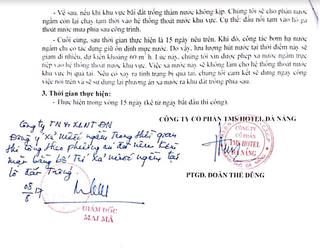 - Về sau, nếu khi khu vực bãi đất trống thấm nước không kịp. Chúng tôi sẽ cho phần nước
ngầm còn lại chạy tạm thời vào hệ thống thoát nước khu vực. Cụ thể: đấu nối tạm vào hố ga
thoát nước mưa phía sau công trình.
- Cuối cùng, sau thời gian thực hiện là 15 ngày nêu trên. Khi đó, công tác bơm hạ nước
ngầm chỉ có tác dụng giữ ổn định mực nước. Do vậy, lưu lượng hút nước tại thời điểm này sẽ
giảm đi nhiều, dự kiến khoảng 60 m³/h. Lúc này, chúng tôi xin được phép xả nước ngầm trực
tiếp vào hệ thống thoát nước khu vực. Việc xả nước này sẽ không làm cho hệ thống thoát nước
khu vực bị quá tải. Nếu có xảy ra tình trạng bị quá tải, chúng tôi cam kết sẽ dừng ngay công
việc nói trên và sẽ sử dụng lại phương án xả nước ra khu đất trống phía sau.
3. Thời gian thực hiện:
- Thực hiện trong vòng 15 ngày (kể từ ngày bắt đầu thi công).
CÔNG TY CỔ PHẦN TMS HOTEL ĐÀ NẴNG
Công ty TN & XLNT ĐN
Đồng ý xả nước ngầm trong thời gian
thi công theo phương án đã nêu trên
nước ngầm tại
lô đất trống
CÔNG TY
CỔ PHẦN
TMS HOTEL
ĐÀ NẴNG
PTGĐ. ĐOÀN THẾ DŨNG
GIÁM ĐỐC
MAI MÃ